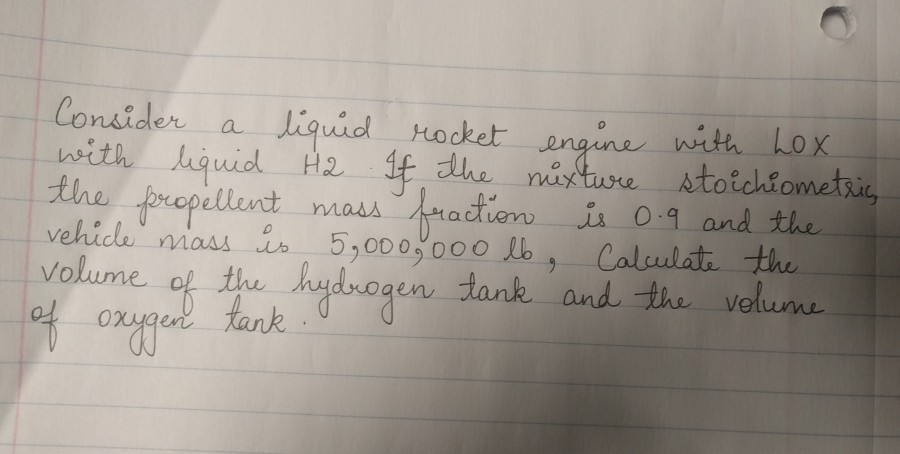 Consider a liquid rocket engine with LOX
with liquid H2. If the mixture stoichiometric,
the propellent mass fraction is 0.9 and the
vehicle mass is 5,000,000 lb, Calculate the
volume of the hydrogen tank and the volume
of oxygen tank.